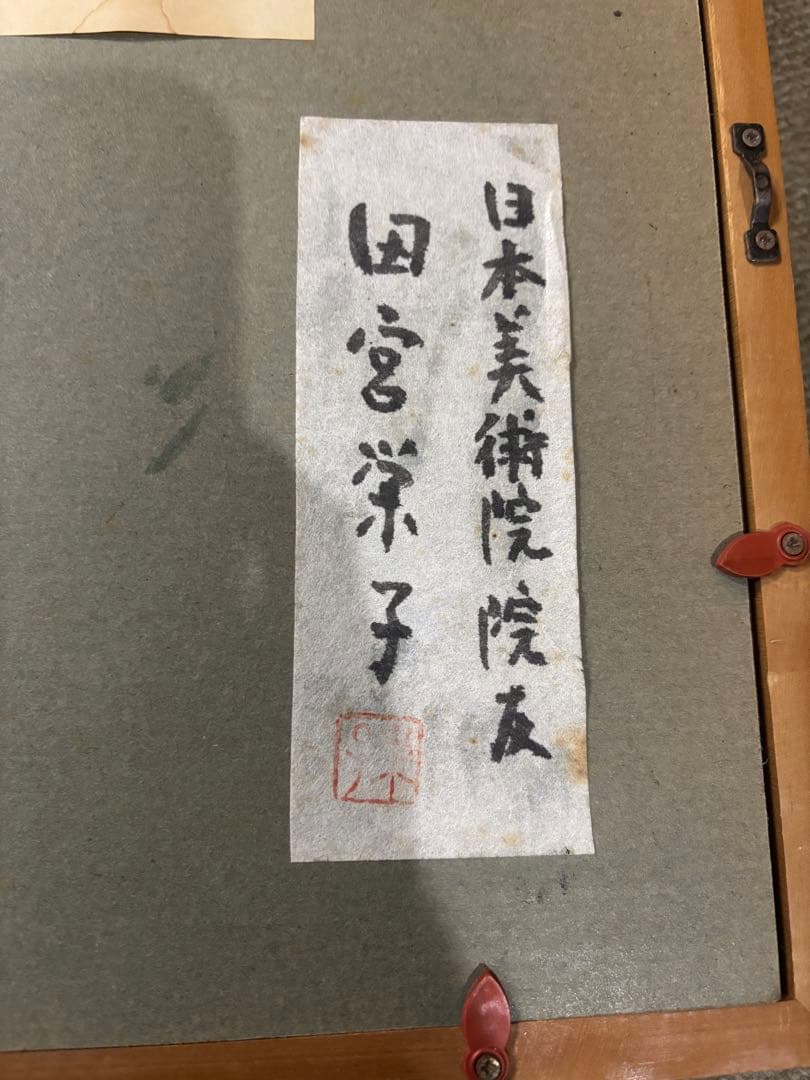 日本美術院院友
田宮栄子